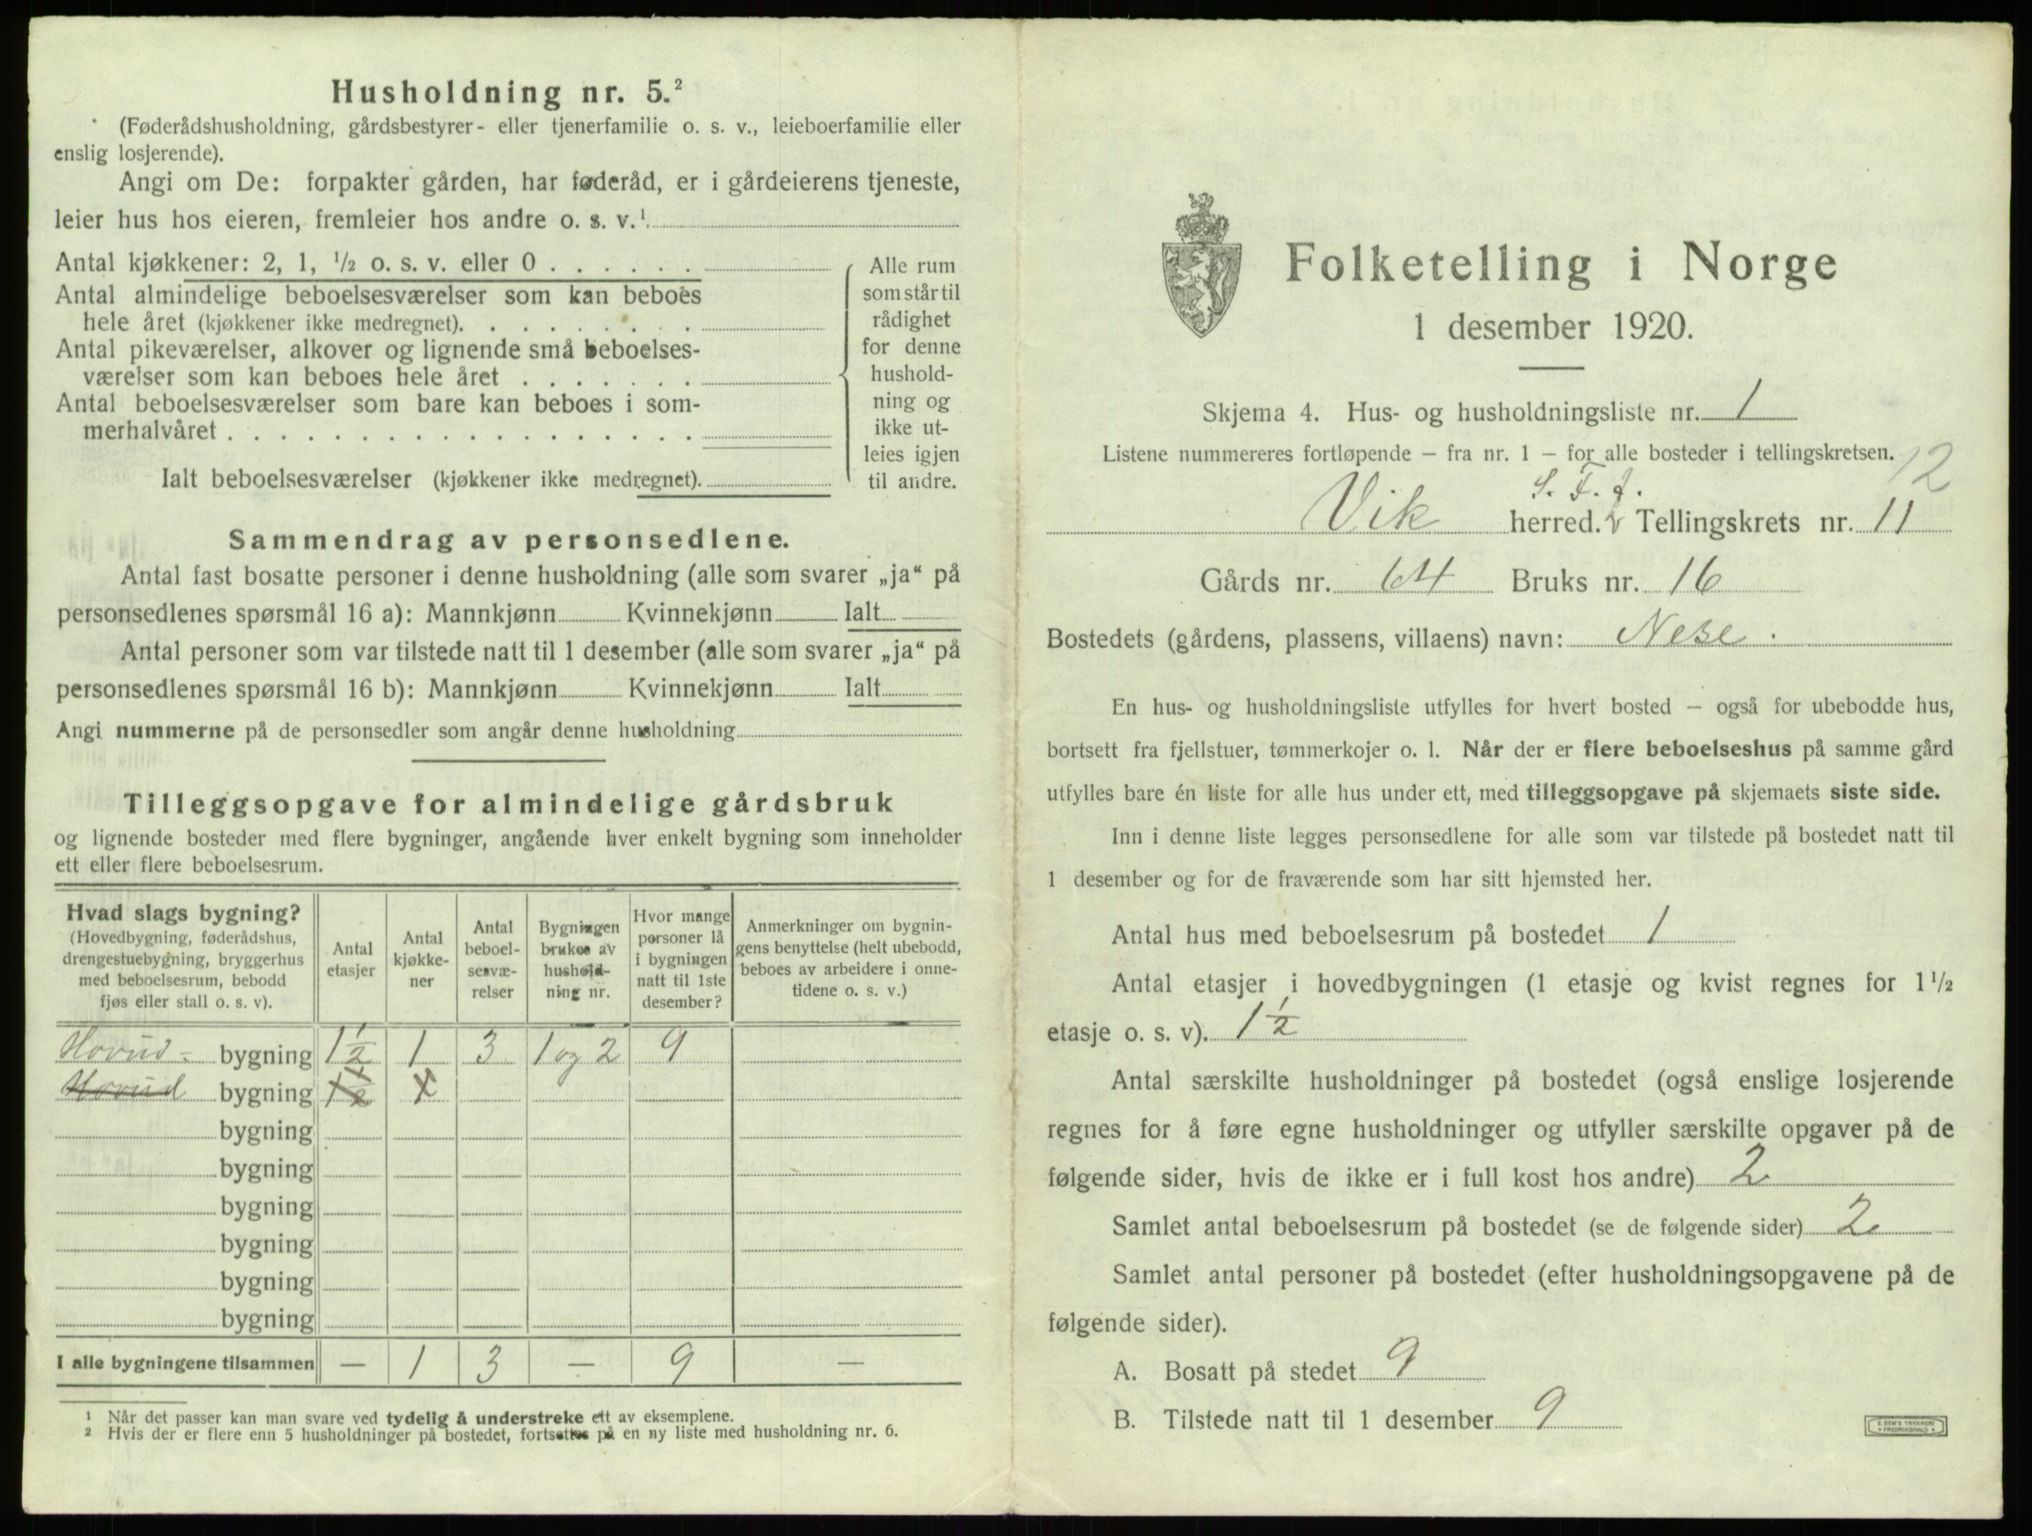 Husholdning nr. 5.²
(Føderådshusholdning, gårdsbestyrer- eller tjenerfamilie o. s. v., leieboerfamilie eller
enslig losjerende).
Angi om De: forpakter gården, har føderåd, er i gårdeierens tjeneste,
leier hus hos eieren, fremleier hos andre o. s. v.¹
Antal kjøkkener: 2, 1, ½ o. s. v. eller 0
Antal almindelige beboelsesværelser som kan beboes
hele året (kjøkkener ikke medregnet)
Antal pikeværelser, alkover og lignende små beboelses-
værelser som kan beboes hele året
Antal beboelsesværelser som bare kan beboes i som-
merhalvåret
Ialt beboelsesværelser (kjøkkener ikke medregnet)
Alle rum
som står til
rådighet
for denne
hushold-
ning og
ikke ut-
leies igjen
til andre.
Sammendrag av personsedlene.
Antal fast bosatte personer i denne husholdning (alle som svarer „ja“ på
personsedlenes spørsmål 16 a): Mannkjønn Kvinnekjønn Ialt
Antal personer som var tilstede natt til 1 desember (alle som svarer „ja“ på
personsedlenes spørsmål 16 b): Mannkjønn Kvinnekjønn Ialt
Angi nummerne på de personsedler som angår denne husholdning
Tilleggsopgave for almindelige gårdsbruk
og lignende bosteder med flere bygninger, angående hver enkelt bygning som inneholder
ett eller flere beboelsesrum.
Hvad slags bygning?
(Hovedbygning, føderådshus,
drengestuebygning, bryggerhus
med beboelsesrum, bebodd
fjøs eller stall o. s. v).
Antal
etasjer
Antal
kjøkke-
ner
Antal
beboel-
sesvæ-
relser
Bygningen
brukes av
hushold-
ning nr.
Hvor mange
personer lå
i bygningen
natt til 1ste
desember?
Anmerkninger om bygnin-
gens benyttelse (helt ubebodd,
beboes av arbeidere i onne-
tidene o. s. v.)
Hovud- bygning 1½ 1 3 1 og 2 9
Hovud bygning 1½
bygning
bygning
bygning
bygning
bygning
bygning
I alle bygningene tilsammen — 1 3 — 9 —
¹ Når det passer kan man svare ved tydelig å understreke ett av eksemplene.
² Hvis der er flere enn 5 husholdninger på bostedet, fortsettes på en ny liste med husholdning nr. 6.
Folketelling i Norge
1 desember 1920.
Skjema 4. Hus- og husholdningsliste nr. 1
Listene nummereres fortløpende – fra nr. 1 – for alle bosteder i tellingskretsen. 12
S. F. f.
Vik herred. Tellingskrets nr. 11
Gårds nr. 64 Bruks nr. 16
Bostedets (gårdens, plassens, villaens) navn: Nese.
En hus- og husholdningsliste utfylles for hvert bosted – også for ubebodde hus,
bortsett fra fjellstuer, tømmerkojer o. l. Når der er flere beboelseshus på samme gård
utfylles bare én liste for alle hus under ett, med tilleggsopgave på skjemaets siste side.
Inn i denne liste legges personsedlene for alle som var tilstede på bostedet natt til
1 desember og for de fraværende som har sitt hjemsted her.
Antal hus med beboelsesrum på bostedet 1
Antal etasjer i hovedbygningen (1 etasje og kvist regnes for 1½
etasje o. s. v). 1½
Antal særskilte husholdninger på bostedet (også enslige losjerende
regnes for å føre egne husholdninger og utfyller særskilte opgaver på de
følgende sider, hvis de ikke er i full kost hos andre) 2
Samlet antal beboelsesrum på bostedet (se de følgende sider) 2
Samlet antal personer på bostedet (efter husholdningsopgavene på de
følgende sider).
A. Bosatt på stedet 9
B. Tilstede natt til 1 desember 9
E. SEM'S TRYKKERI
FREDRIKSHALD